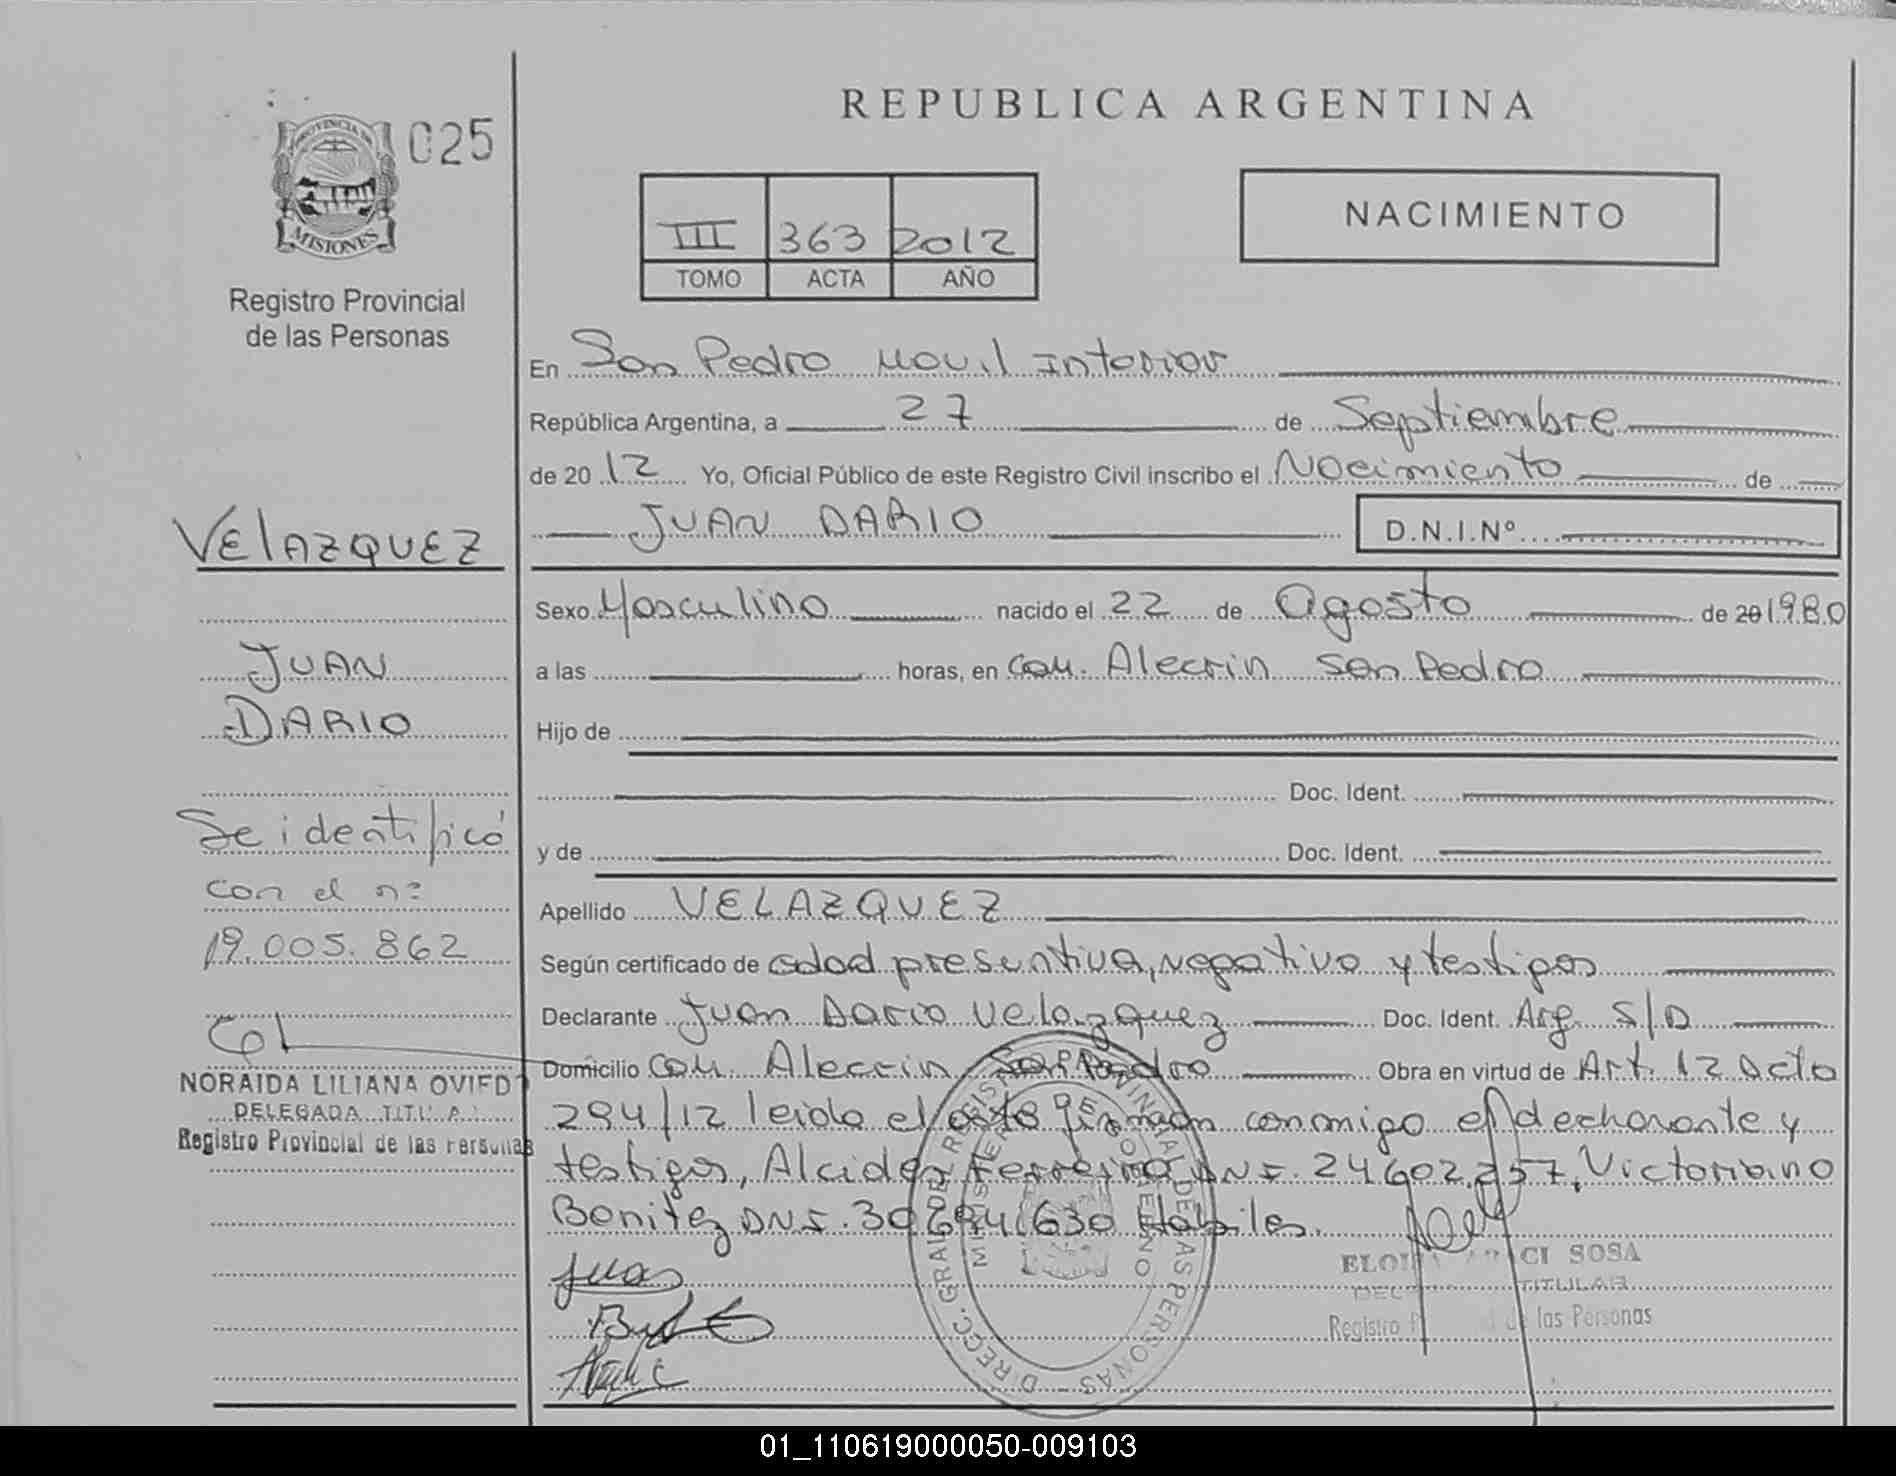 025
PROVINCIA DE
MISIONES
Registro Provincial
de las Personas
VELAZQUEZ
JUAN
DARIO
Se identificó
con el nº
19.005.862
NORAIDA LILIANA OVIEDO
DELEGADA TITULAR
Registro Provincial de las Personas
REPUBLICA ARGENTINA
III 363 2012
TOMO ACTA AÑO
NACIMIENTO
En San Pedro Movil Interior
República Argentina, a 27 de Septiembre
de 20 12 Yo, Oficial Público de este Registro Civil inscribo el Nacimiento de
JUAN DARIO D.N.I.Nº
Sexo Masculino nacido el 22 de Agosto de 20 1980
a las horas, en Col. Alecrin San Pedro
Hijo de
Doc. Ident.
y de Doc. Ident.
Apellido VELAZQUEZ
Según certificado de edad presuntiva, negativo y testigos
Declarante Juan Dario Velazquez Doc. Ident. Arg. S/D
Domicilio Col. Alecrin San Pedro Obra en virtud de Art. 12 Acta
294/12 leida el acta firman conmigo el declarante y
testigos, Alcides Ferreira DNI. 24.602.257, Victoriano
Benitez DNI. 30.694.630 Habiles.
Juan
SOSA
TITULAR
Registro de las Personas
DIRECC. GRAL. DE REGISTRO PROVINCIAL DE LAS PERSONAS
MINISTERIO DE GOBIERNO
01_110619000050-009103